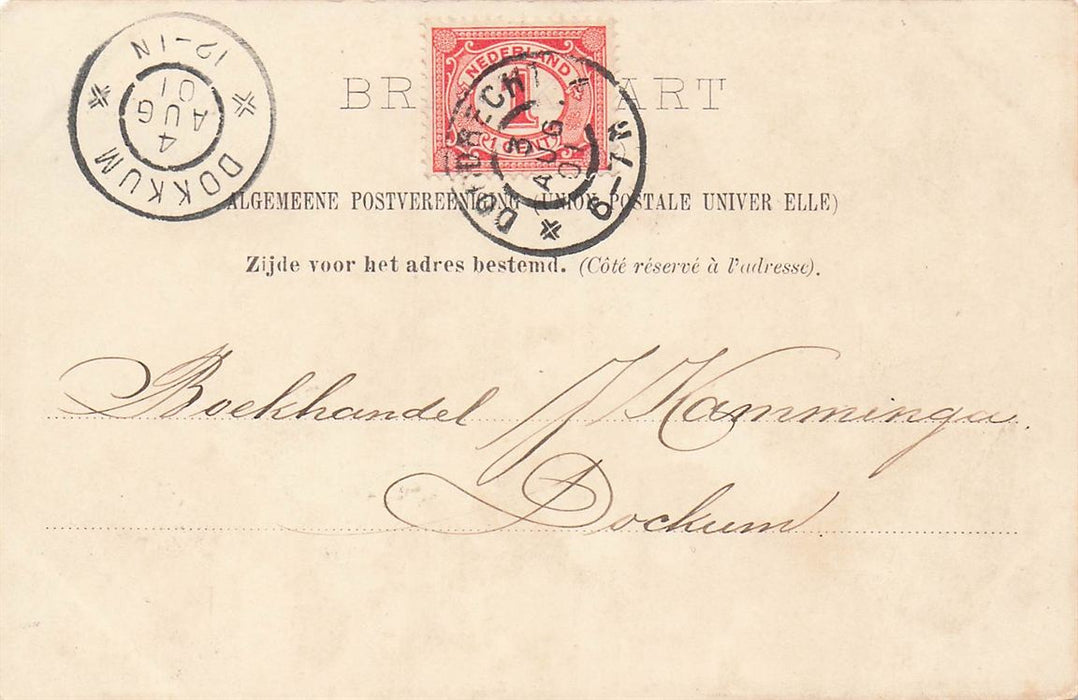 DOKKUM
4 AUG 01
12-1N
NEDERLAND
1
1 CENT
DORDRECHT
3 AUG 01
6-7N
BR ART
ALGEMEENE POSTVEREENIGING (UNION POSTALE UNIVER ELLE)
Zijde voor het adres bestemd. (Côté réservé à l'adresse).
Boekhandel Kamminga
Dockum